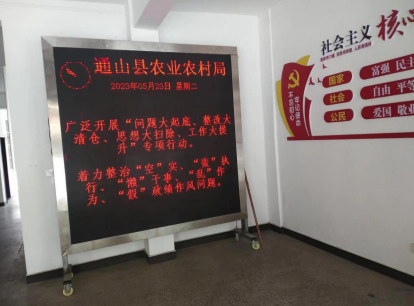 通山县农业农村局
2023年05月23日 星期二
广泛开展“问题大起底、整改大
清仓、思想大扫除、工作大提
升”专项行动。
着力整治“空”实、“虚”执
行、“懒”干事、“乱”作
为、“假”政绩作风问题。
社会主义核心
不忘初心
牢记使命
国家
富强 民主
社会
自由 平等
公民
爱国 敬业